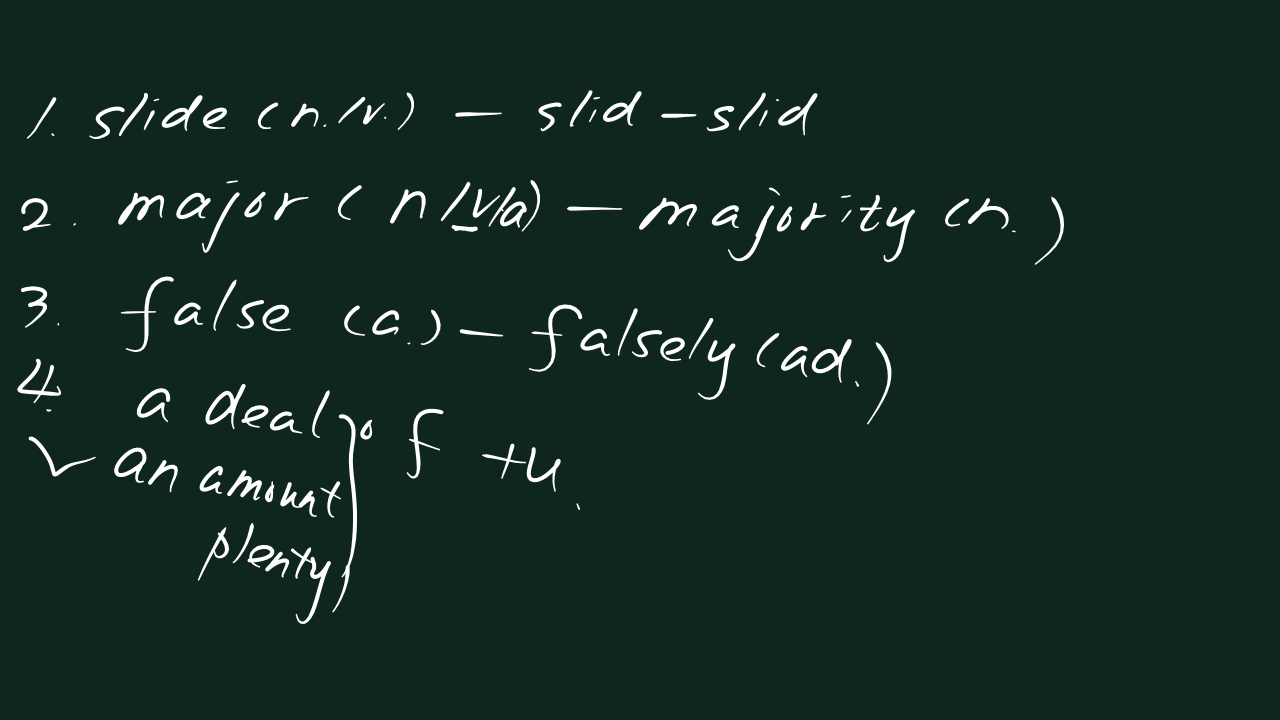 1. slide (n./v.) — slid — slid
2. major (n/v/a) — majority (n.)
3. false (a.) — falsely (ad.)
4. a deal
✓ an amount } of +u.
plenty